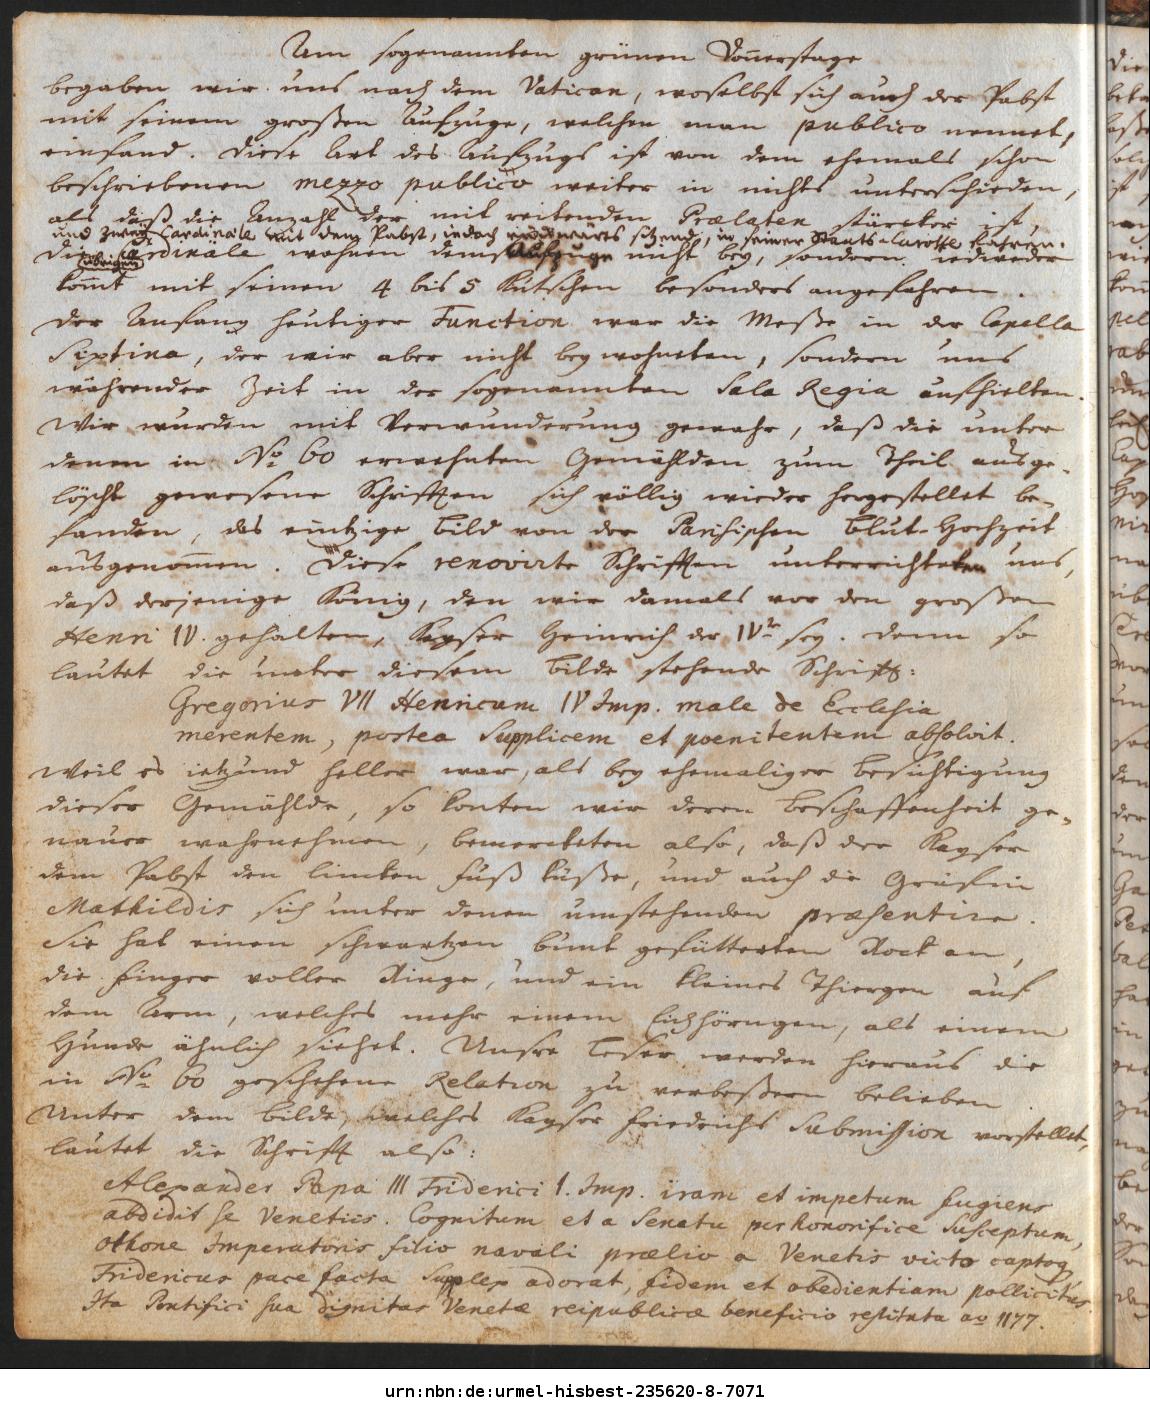 Am sogenannten grünen Doñerstage
begaben wir uns nach dem Vatican, woselbst sich auch der Pabst
mit seinem großen Aufzuge, welchen man publico nennet,
einfand. Diese Art des Aufzugs ist von dem ehemals schon
beschriebenen mezzo publico weiter in nichts unterschieden,
als daß die Anzahl der mit reitenden Prælaten stärcker ist,
und zwey Cardinäle mit dem Pabst, iedoch rückwärts sitzend, in seiner Staats-Carosse fahren.
Die übrigen Cardinäle wohnen dem Aufzuge nicht bey, sondern iedweder
kom̃t mit seinen 4 bis 5 Kutschen besonders angefahren.
Der Anfang heutiger Function war die Meße in der Capella
Sixtina, der wir aber nicht beywohneten, sondern uns
währender Zeit in der sogenannten Sala Regia aufhielten.
Wir wurden mit Verwunderung gewahr, daß die unter
denen in No 60 erwehnten Gemählden zum Theil ausge-
löscht gewesene Schrifften sich völlig wieder hergestellet be-
fanden, das eintzige Bild von der Parisischen Blut-Hochzeit
ausgenom̃en. Diese renovirte Schrifften unterrichteten uns,
daß derjenige König, den wir damals vor den großen
Henri IV. gehalten, Kayser Heinrich der IVte sey. Denn so
lautet die unter diesem Bilde stehende Schrifft:
Gregorius VII Henricum IV Imp. male de Ecclesia
merentem, postea supplicem et poenitentem absolvit.
Weil es ietzund heller war, als bey ehemaliger Besichtigung
dieser Gemählde, so konten wir deren Beschaffenheit ge-
nauer wahrnehmen, bemerckten also, daß der Kayser
dem Pabst den lincken Fuß küße, und auch die Gräfin
Mathildis sich unter denen umstehenden præsentire.
Sie hat einen schwartzen bunt gefütterten Rock an,
die Finger voller Ringe, und ein kleines Thiergen auf
dem Arm, welches mehr einem Eichhörngen, als einem
Hunde ähnlich siehet. Unsre Leser werden hieraus die
in No 60 geschehene Relation zu verbeßern belieben.
Unter dem Bilde, welches Kayser Friedrichs Submission vorstellet,
lautet die Schrifft also:
Alexander Papa III Friderici I. Imp. iram et impetum fugiens
abdidit se Venetiis. Cognitum et a Senatu perhonorifice susceptum,
Othone Imperatoris filio navali prælio a Venetis victo captoq
Fridericus pace facta supplex adorat, fidem et obedientiam pollicitus.
Ita Pontifici sua dignitas Venetæ reipublicæ beneficio restituta ao 1177.
urn:nbn:de:urmel-hisbest-235620-8-7071